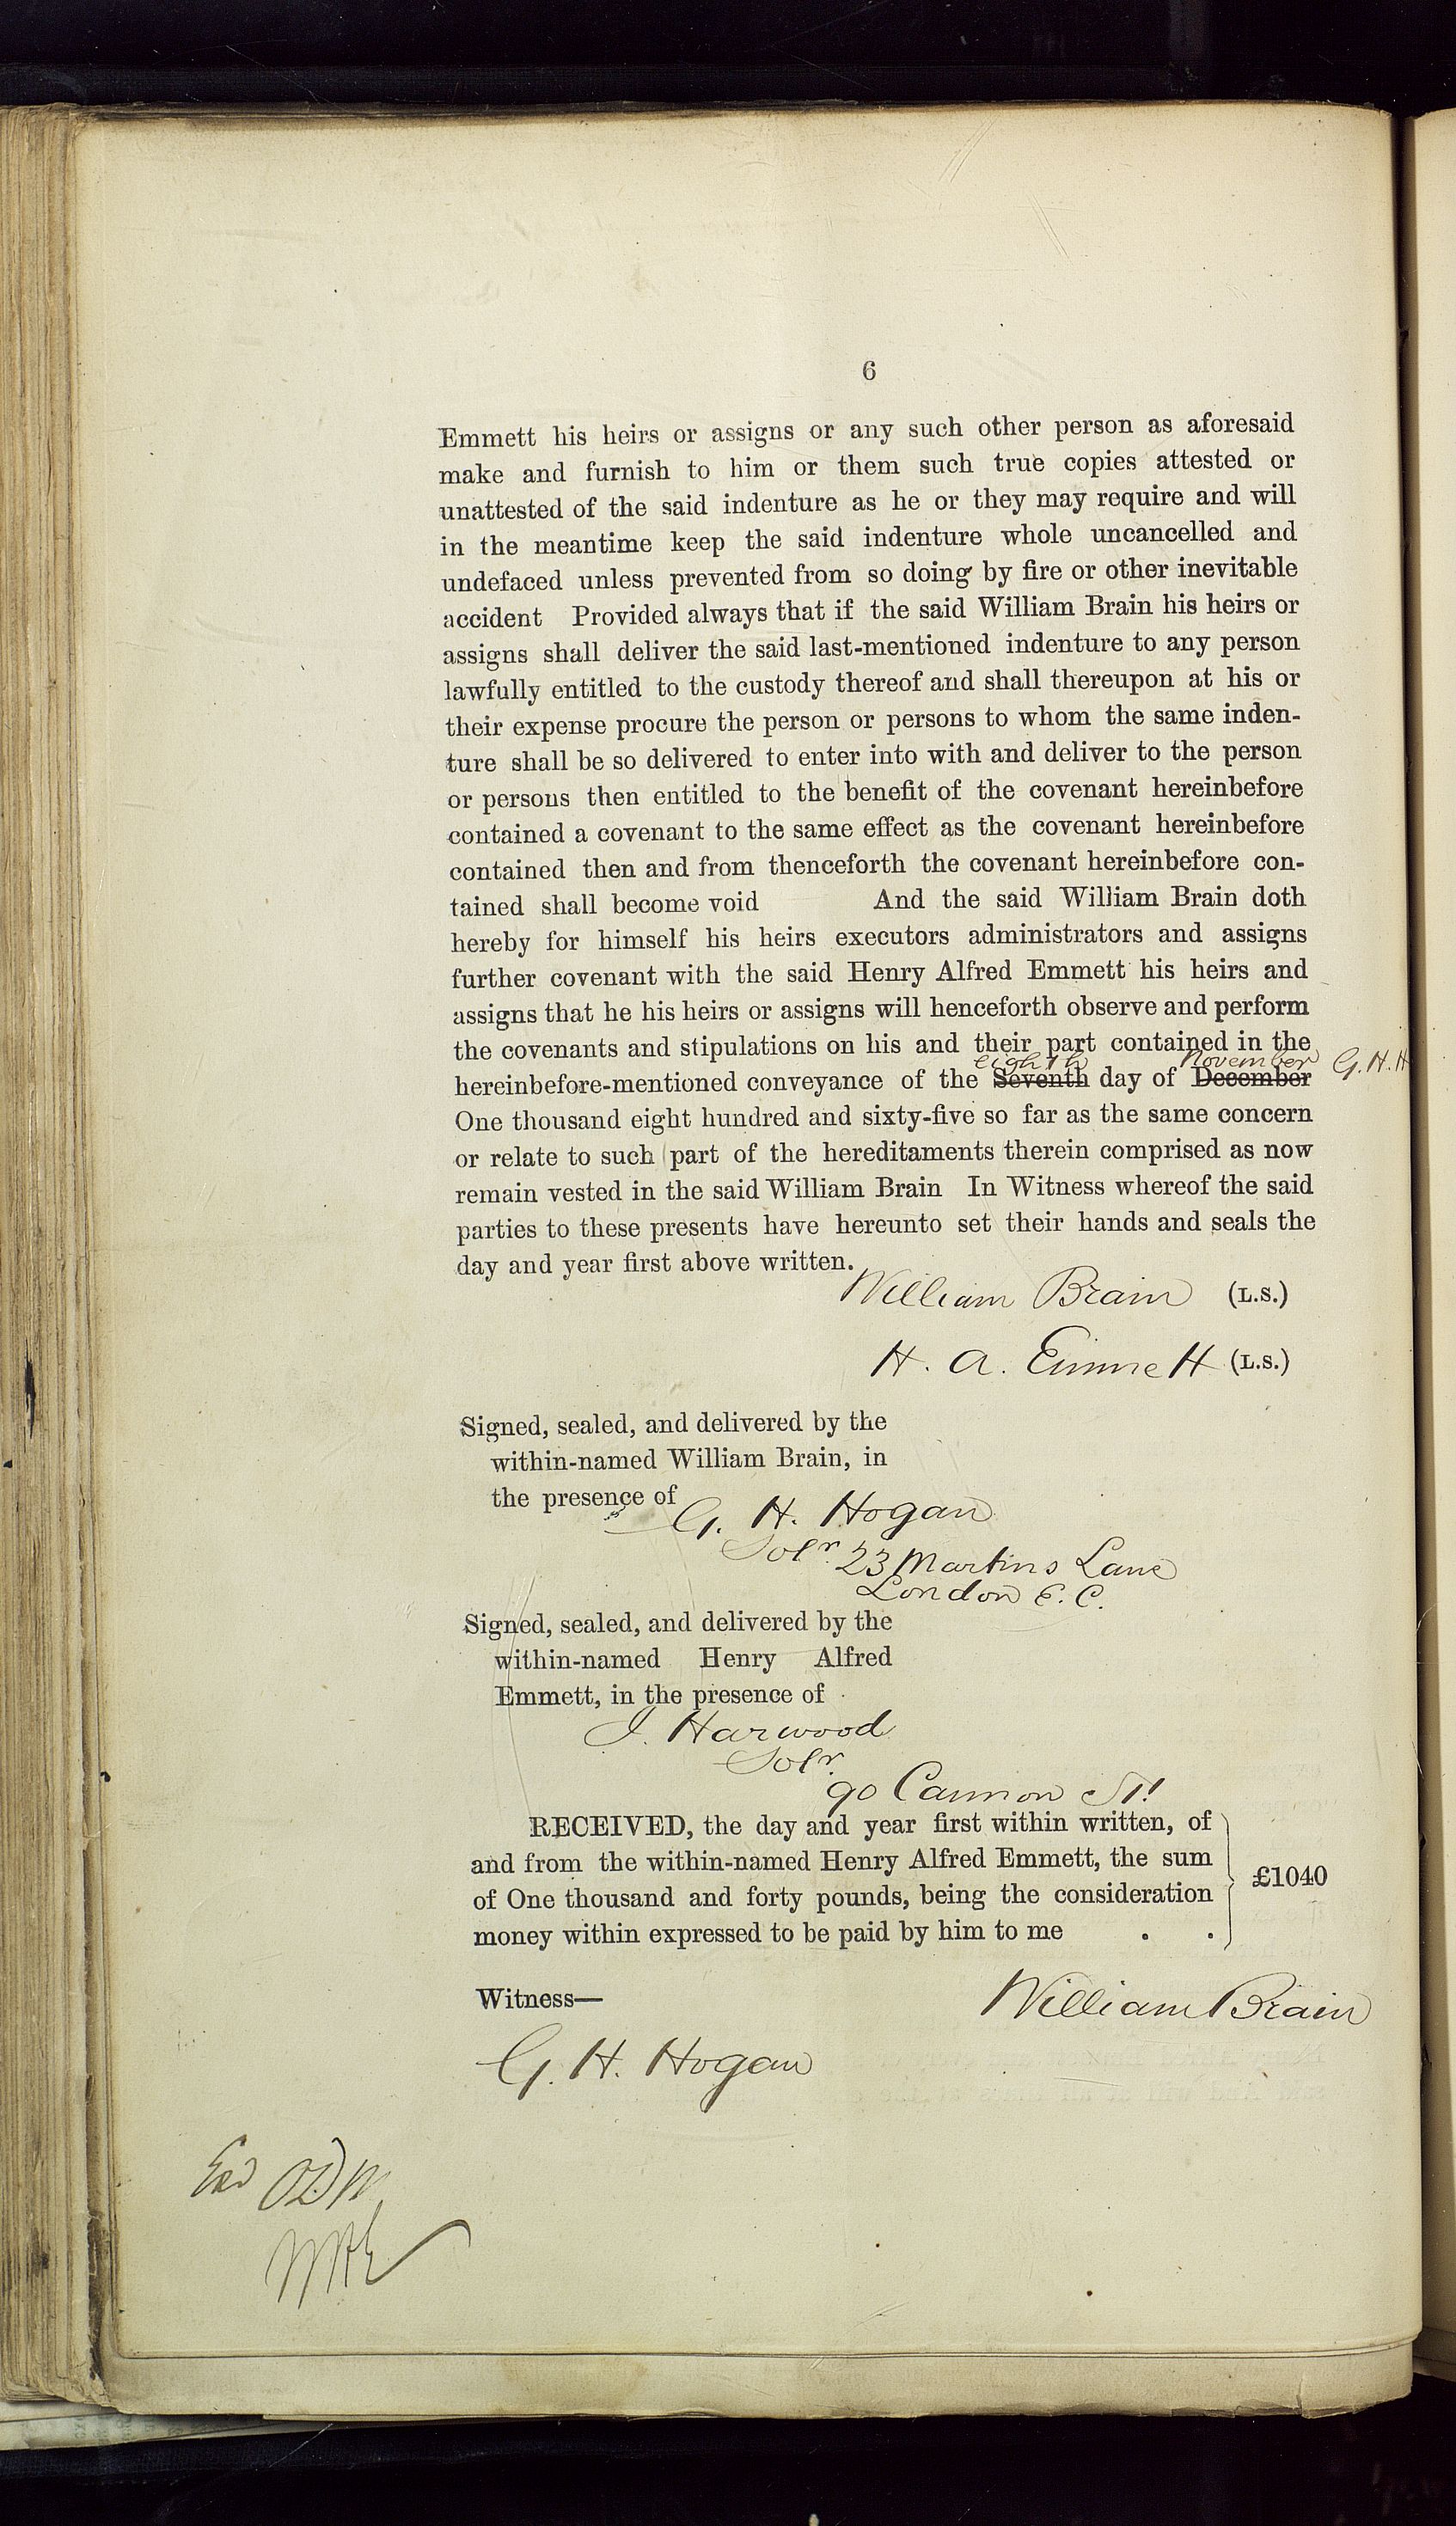 6
Emmett his heirs or assigns or any such other person as aforesaid
make and furnish to him or them such true copies attested or
unattested of the said indenture as he or they may require and will
in the meantime keep the said indenture whole uncancelled and
undefaced unless prevented from so doing by fire or other inevitable
accident Provided always that if the said William Brain his heirs or
assigns shall deliver the said last-mentioned indenture to any person
lawfully entitled to the custody thereof and shall thereupon at his or
their expense procure the person or persons to whom the same inden-
ture shall be so delivered to enter into with and deliver to the person
or persons then entitled to the benefit of the covenant hereinbefore
contained a covenant to the same effect as the covenant hereinbefore
contained then and from thenceforth the covenant hereinbefore con-
tained shall become void And the said William Brain doth
hereby for himself his heirs executors administrators and assigns
further covenant with the said Henry Alfred Emmett his heirs and
assigns that he his heirs or assigns will henceforth observe and perform
the covenants and stipulations on his and their part contained in the
eighth November G. H. H
hereinbefore-mentioned conveyance of the Seventh day of December
One thousand eight hundred and sixty-five so far as the same concern
or relate to such part of the hereditaments therein comprised as now
remain vested in the said William Brain In Witness whereof the said
parties to these presents have hereunto set their hands and seals the
day and year first above written.
William Brain (L.S.)
H. A. Emmett (L.S.)
Signed, sealed, and delivered by the
within-named William Brain, in
the presence of
G. H. Hogan
Solr. 23 Martins Lane
London E. C.
Signed, sealed, and delivered by the
within-named Henry Alfred
Emmett, in the presence of
J. Harwood
Solr.
90 Cannon St.
RECEIVED, the day and year first within written, of
and from the within-named Henry Alfred Emmett, the sum
of One thousand and forty pounds, being the consideration
money within expressed to be paid by him to me . .
£1040
Witness—
William Brain
G. H. Hogan